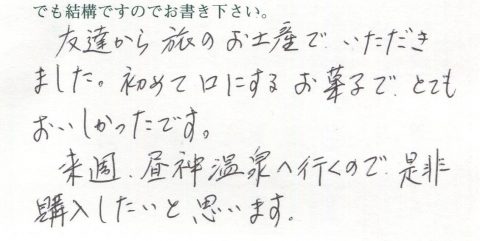 でも結構ですのでお書き下さい。
友達から旅のお土産で、いただき
ました。初めて口にするお菓子で、とても
おいしかったです。
来週、昼神温泉へ行くので、是非
購入したいと思います。